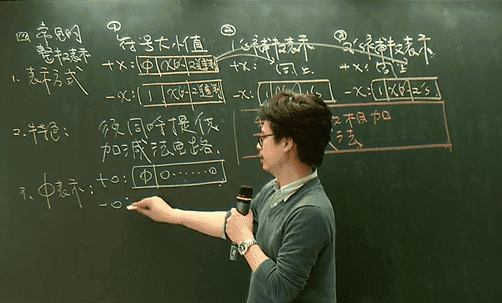 四 常見的
整數表示
① 符号大小值 ② 1's補數表示 ③ 2's補數表示
1. 表示方式 +X: φ X的2進制 +X: (同)上 +X: (同)上
-X: 1 X的2進制 -X: 1 X的1's -X: 1 X的2's
2. 特色: 須同時提供
加減法電路
相加
法
3. φ表示: +0: φ 0……0
-0: